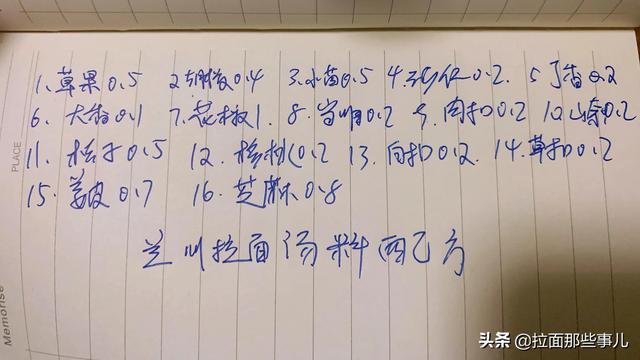 1、草果0.5 2、胡椒0.4 3、小茴0.5 4、砂仁0.2、5丁香0.2
6、大香0.1 7、花椒1、8、当归0.2 9、肉扣0.2 10山奈0.2
11、桂子0.5 12、0.2 13、白扣0.2、14、草扣0.2
15、姜皮0.7 16、芝麻0.8
兰州拉面汤料配方
PLACE
Memorise
头条 @拉面那些事儿